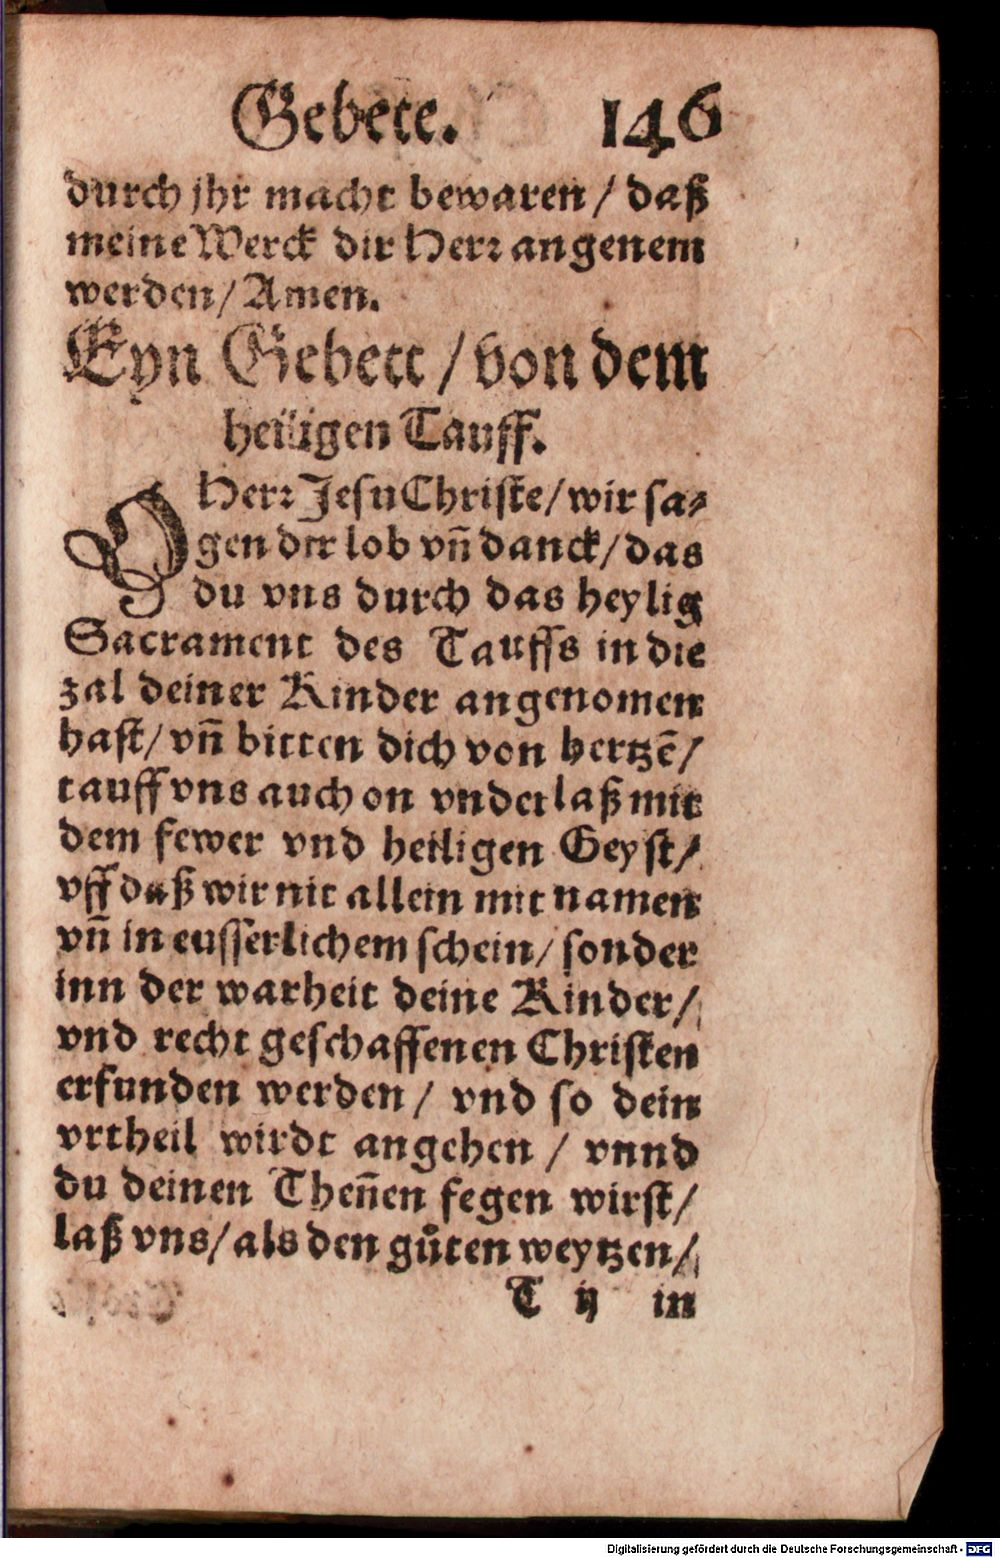 Gebete. 146
durch jhr macht bewaren / daß
meine Werck dir Herꝛ angenem
werden / Amen.
Eyn Gebett / von dem
heiligen Tauff.
O Herꝛ Jesu Christe / wir sa⸗
gen dir lob vñ danck / das
du vns durch das heylig
Sacrament des Tauffs in die
zal deiner Kinder angenomen
hast / vñ bitten dich von hertzẽ /
tauff vns auch on vnderlaß mit
dem fewer vnd heiligen Geyst /
vff daß wir nit allein mit namen
vñ in eusserlichem schein / sonder
inn der warheit deine Kinder /
vnd recht geschaffenen Christen
erfunden werden / vnd so dein
vrtheil wirdt angehen / vnnd
du deinen Theñen fegen wirst /
laß vns / als den gůten weytzen /
T ij in
Digitalisierung gefördert durch die Deutsche Forschungsgemeinschaft - DFG